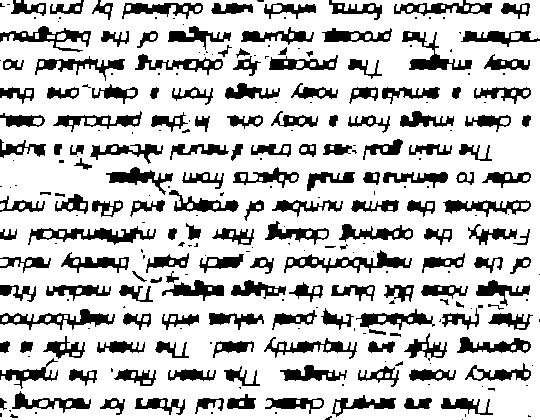 There are several classic spatial filters for reducing
quency noise from images. The mean filter, the median
opening filter are frequently used. The mean filter is a
filter that replaces the pixel values with the neighborhood
image noise but blurs the image edges. The median filter
of the pixel neighborhood for each pixel, thereby reducing
Finally, the opening closing filter is a mathematical
combines the same number of erosion and dilation
order to eliminate small objects from images.
The main goal was to train a neural network in a
a clean image from a noisy one. In this particular case,
obtain a simulated noisy image from a clean one than
noisy images. The process for obtaining simulated
This process requires images of the
the acquisition forms, which were obtained by printing